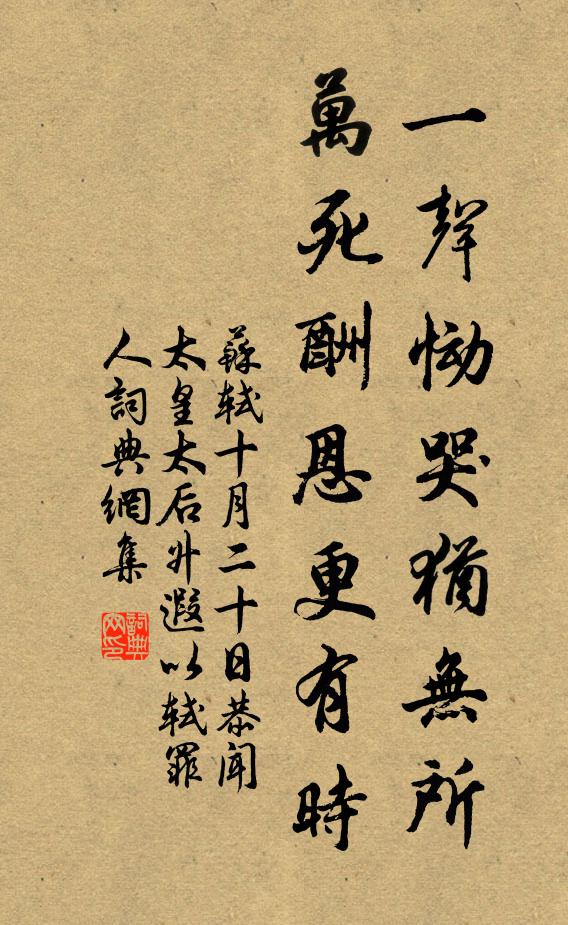 一聲慟哭猶無所
萬死酬恩更有時
蘇軾十月二十日恭聞
太皇太后升遐以軾罪
人詞典網集
詞典
网印